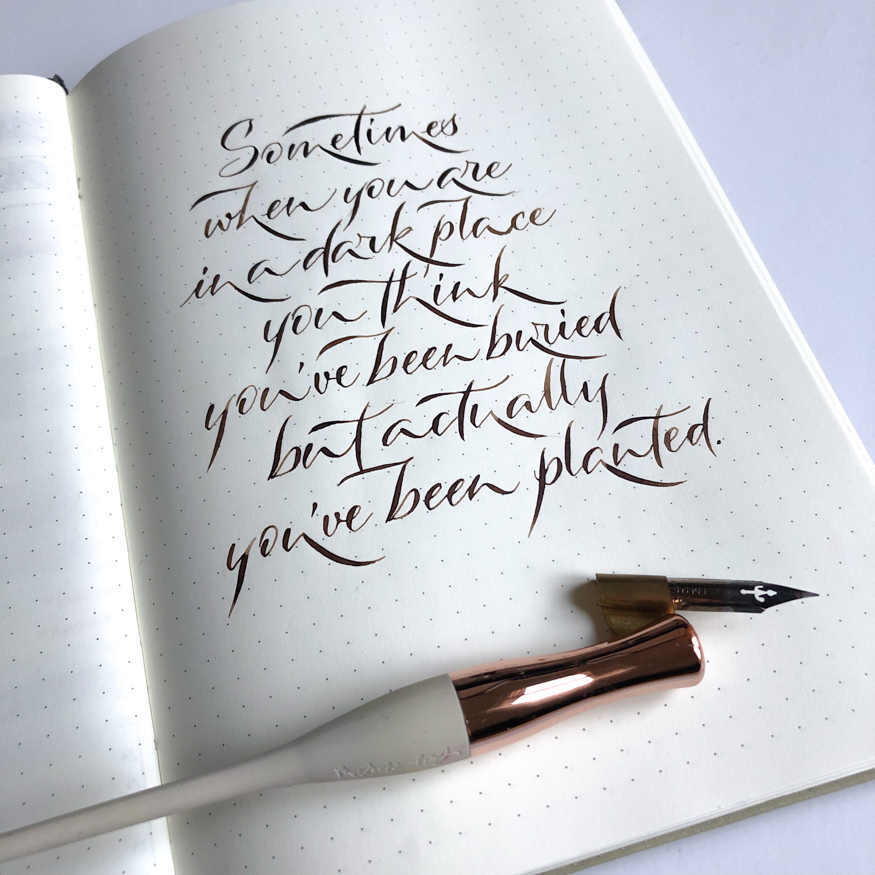 Sometimes
when you are
in a dark place
you think
you've been buried
but actually
you've been planted.